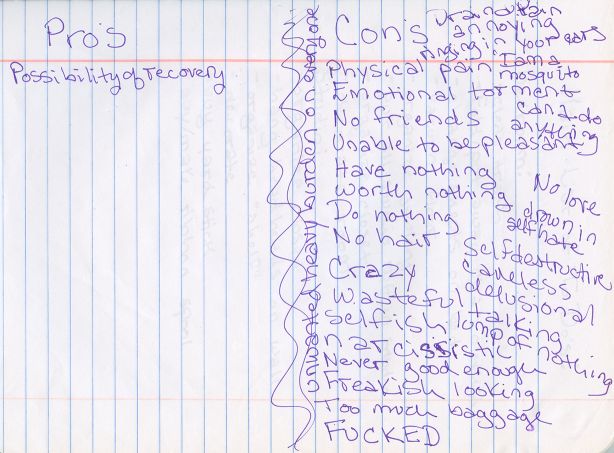 Pro's
Possibility of recovery
unwanted, heavy burden on everyone
Con's
annoying
ringing in your ears
Physical pain
I am a
mosquito
Emotional torment
No friends
Can't do
anything
Unable to be pleasant
Have nothing
Worth nothing
No love
Do nothing
drown in
self hate
No hair
Self destructive
Crazy
careless
Wasteful
delusional
Selfish
talking
lump of nothing
narcissistic
Never good enough
Freakish looking
Too much baggage
FUCKED